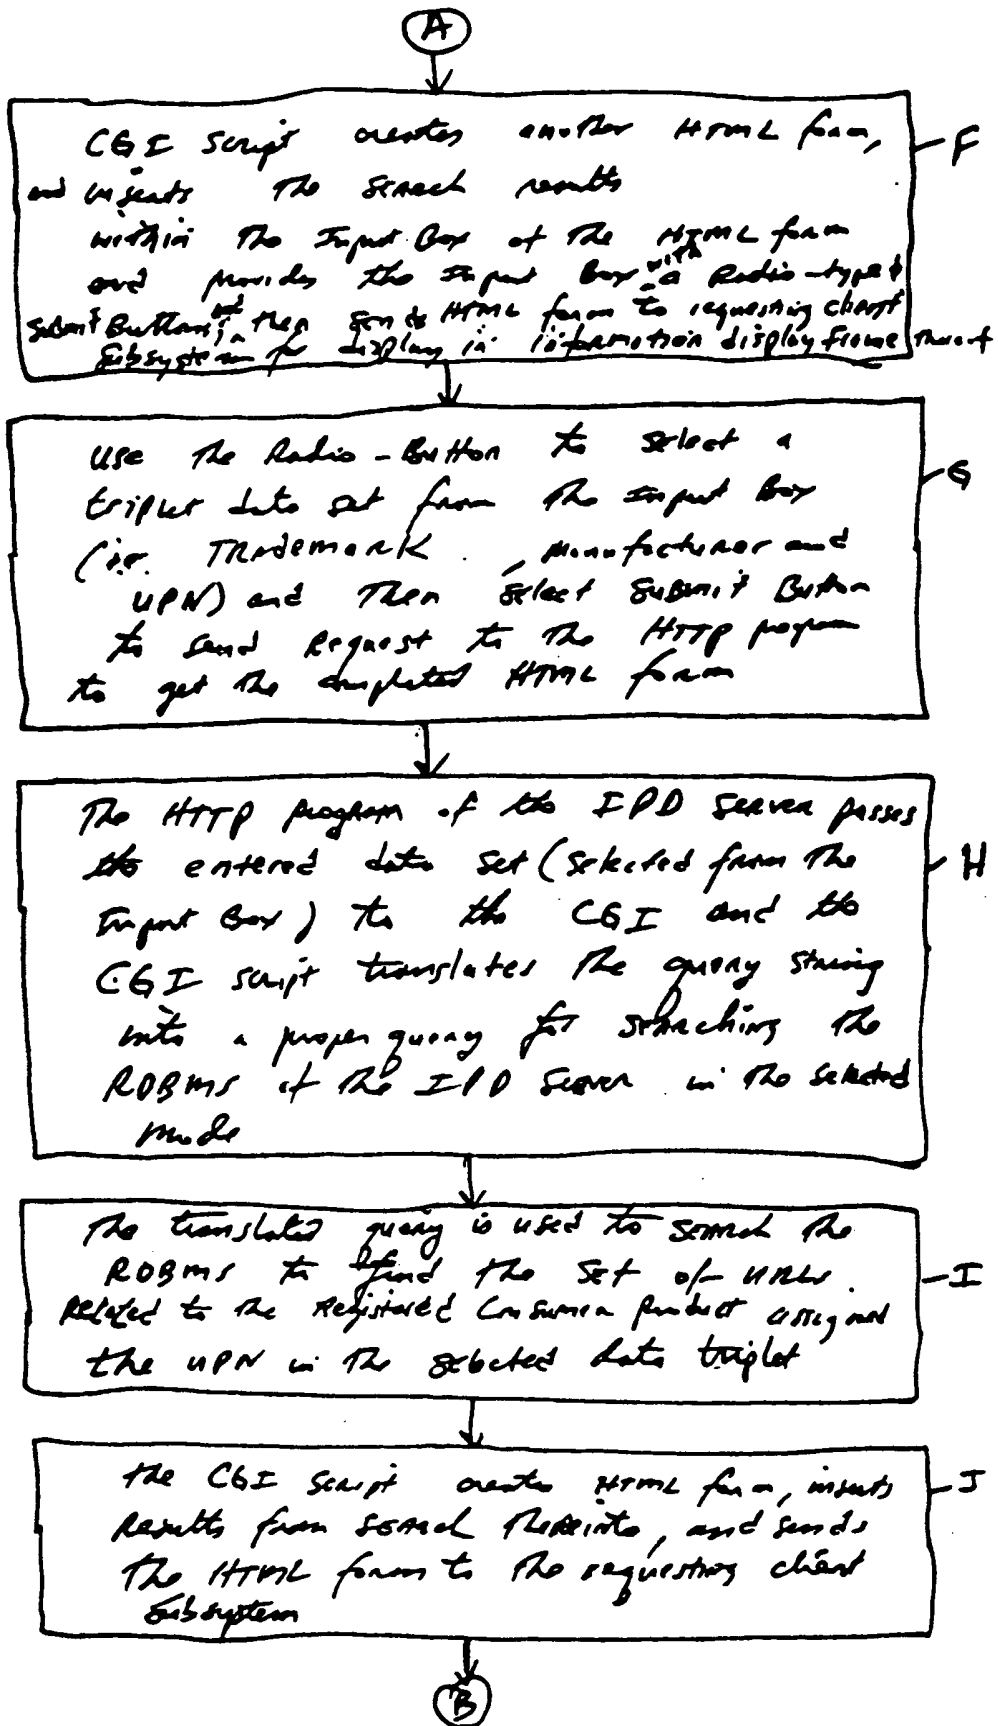 A
CGI Script creates another HTML form,
F
and inserts the search results
within the Input Box of the HTML form
and provides the Input Box with a Radio-type &
Submit Buttons, and then sends HTML form to requesting client
Subsystem for display in information display frame thereof
Use the Radio-Button to select a
triplet data set from the Input Box
G
(i.e. Trademark, Manufacturer and
UPN) and Then Select Submit Button
to send Request to the HTTP program
to get the completed HTML form
The HTTP program of the IPD Server passes
the entered data set (selected from the
H
Input Box) to the CGI and the
CGI script translates the query string
into a proper query for searching the
RDBMS of the IPD Server in the selected
mode
The translated query is used to search the
RDBMS to find the set of URLs
I
Related to the Registered Consumer Product assigned
the UPN in the selected data triplet
the CGI Script creates HTML form, inserts
J
Results from search thereinto, and sends
the HTML form to the requesting client
Subsystem
B